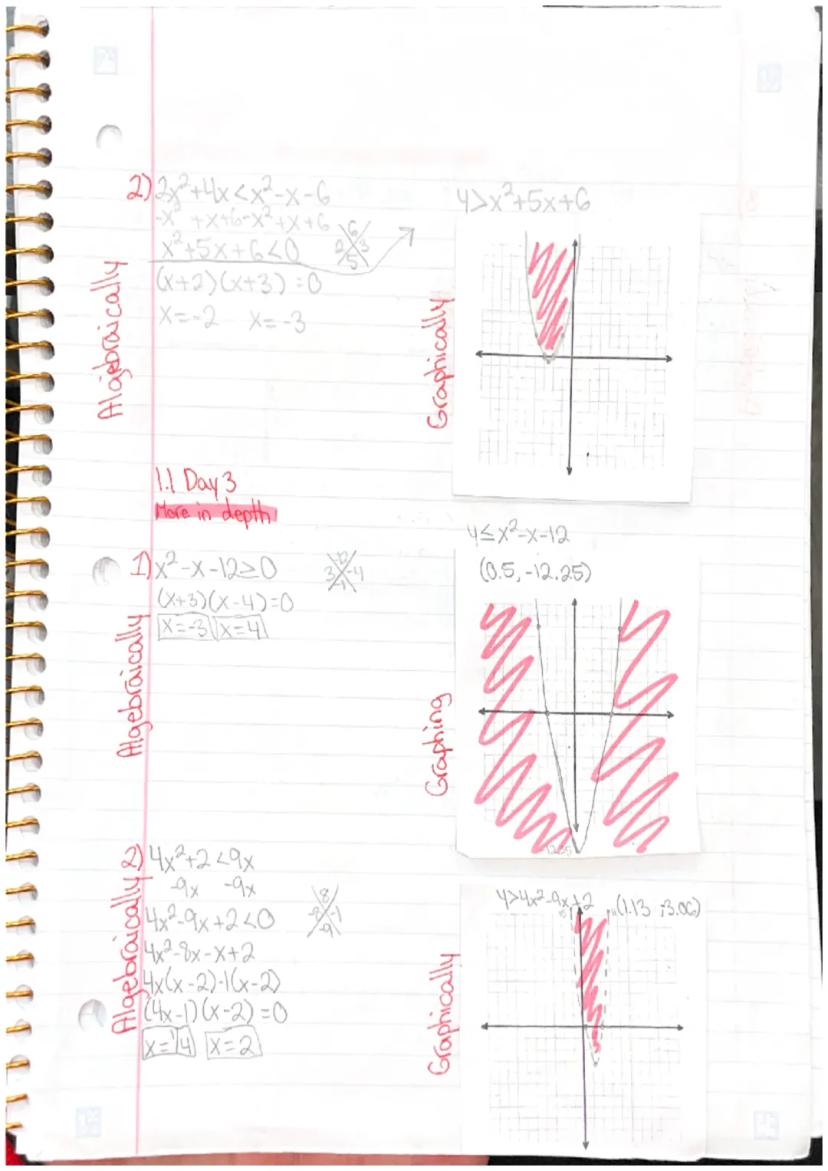 2) 2x²+4x<x²-x-6
-x² +x+6-x²+x+6
x²+5x+6<0
6
2 3
5
(x+2)(x+3)=0
x=-2 x=-3
Algebraically
y>x²+5x+6
Graphically
1.1 Day 3
More in depth
1) x²-x-12≥0
-12
3 -4
-1
(x+3)(x-4)=0
x=-3 x=4
Algebraically
y≤x²-x-12
(0.5, -12.25)
Graphing
2) 4x²+2<9x
-9x -9x
4x²-9x+2<0
8
-8 -1
-9
4x²-8x-x+2
4x(x-2)-1(x-2)
(4x-1)(x-2)=0
x=1/4 x=2
Algebraically
y>4x²-9x+2
(1.13, -3.06)
Graphically